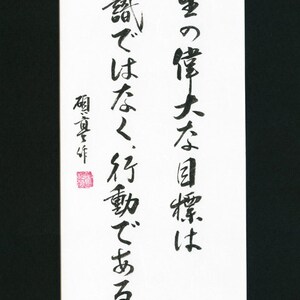 生の偉大な目標は
識ではなく、行動である
碩真作